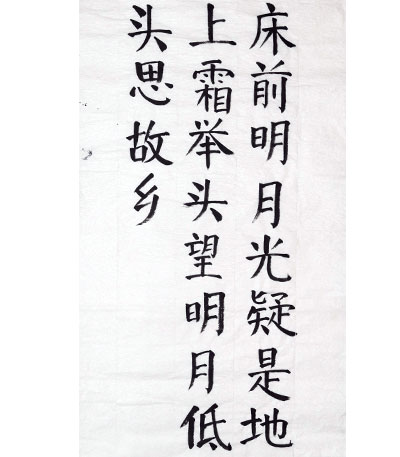 床前明月光疑是地
上霜举头望明月低
头思故乡